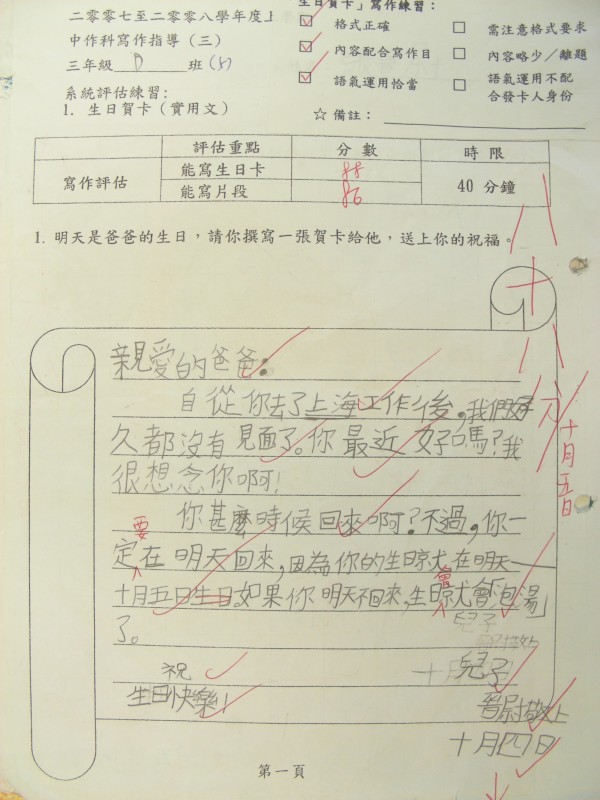 二零零七至二零零八學年度上
中作科寫作指導（三）
三年級 D 班(8)
系統評估練習：
1. 生日賀卡（實用文）
生日賀卡」寫作練習：
格式正確
需注意格式要求
內容配合寫作目
內容略少／離題
語氣運用恰當
語氣運用不配
合發卡人身份
☆ 備註：
評估重點 分數 時限
寫作評估
能寫生日卡 88
能寫片段 86
40 分鐘
1. 明天是爸爸的生日，請你撰寫一張賀卡給他，送上你的祝福。
八十八分
十月五日
親愛的爸爸：
自從你去了上海工作後，我們好
久都沒有見面了。你最近好嗎？我
很想念你啊！
你甚麼時候回來啊？不過，你一
定要在明天回來，因為你的生日就在明天—
十月五日生日。如果你明天不回來，生日會就會「泡湯」
了。
祝
生日快樂！
兒子
敬上
十月四日
第一頁